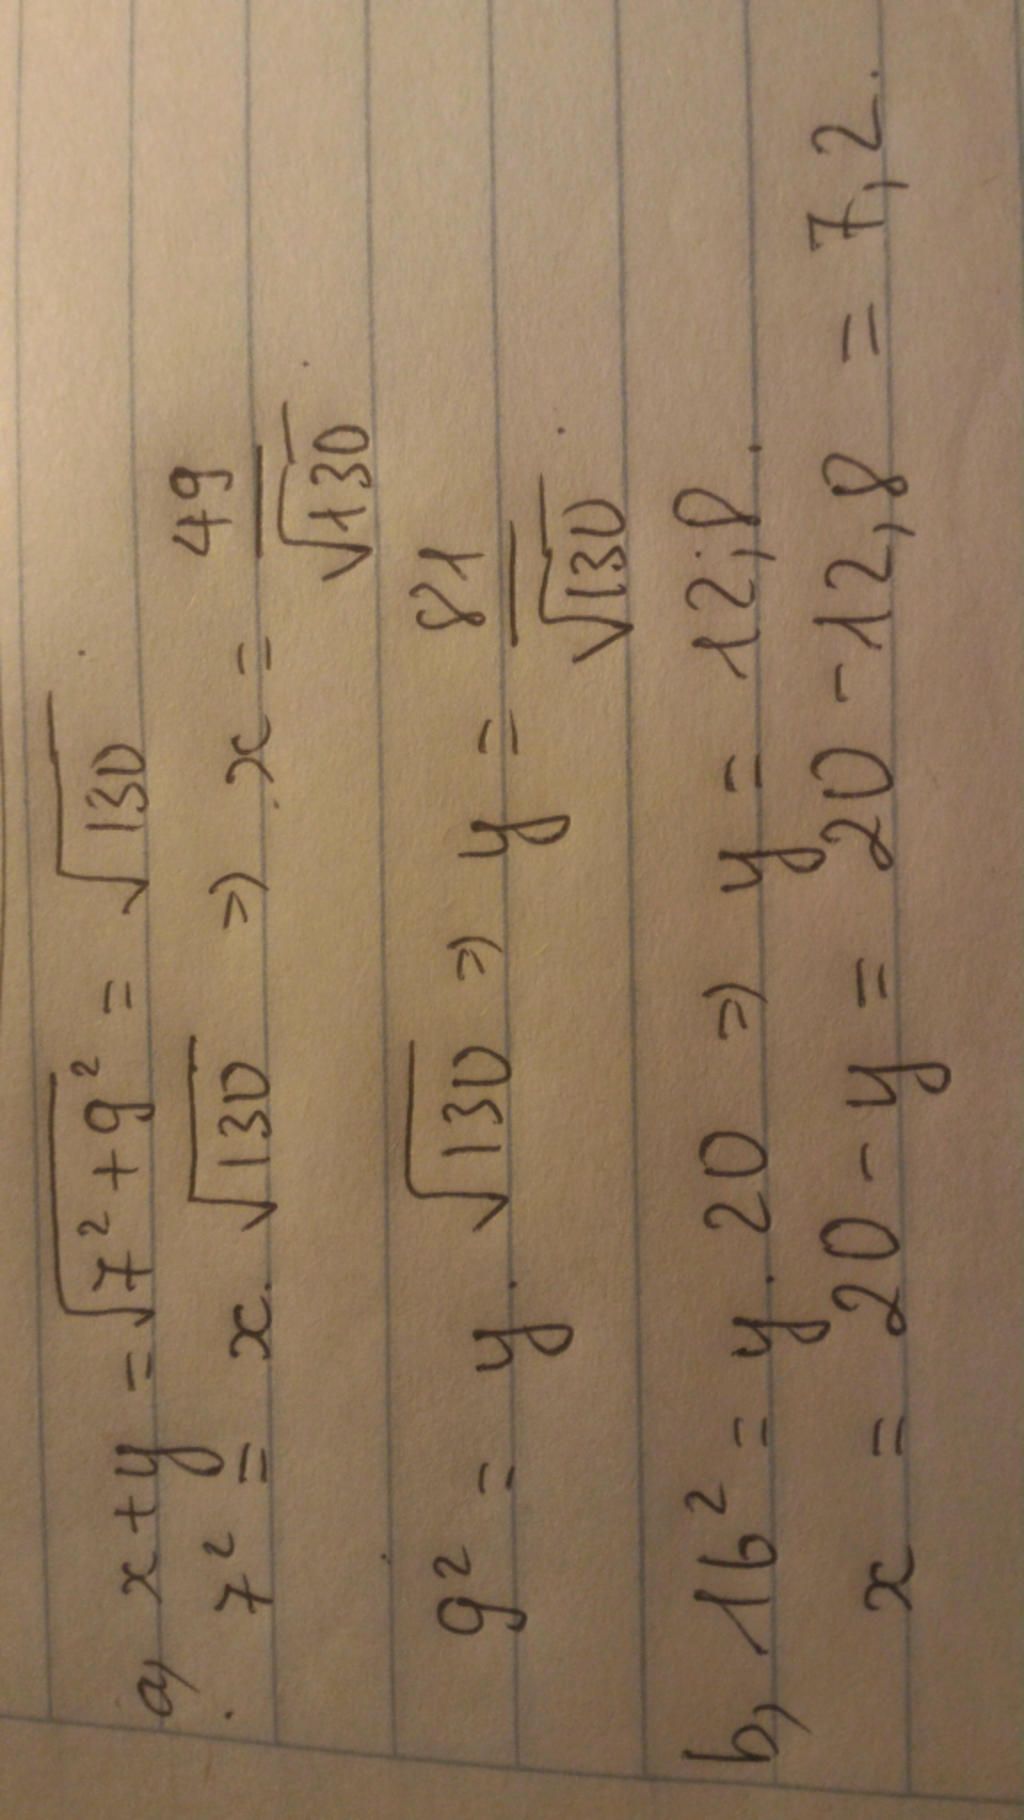 a, x + y = √(7² + 9²) = √130
7² = x. √130 => x = 49/√130
9² = y. √130 => y = 81/√130
b, 16² = y. 20 => y = 12,8.
x = 20 - y = 20 - 12,8 = 7,2.